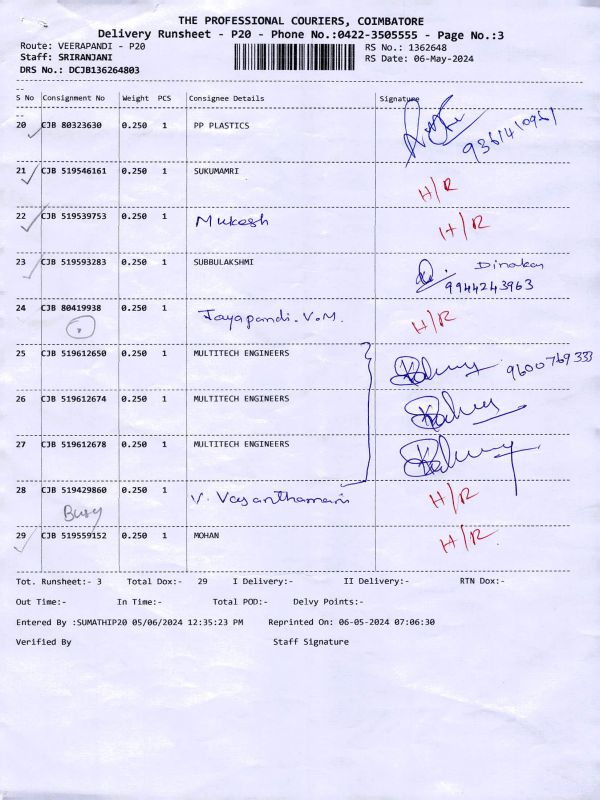 THE PROFESSIONAL COURIERS, COIMBATORE
Delivery Runsheet - P20 - Phone No.:0422-3505555 - Page No.:3
Route: VEERAPANDI - P20 RS No.: 1362648
Staff: SRIRANJANI RS Date: 06-May-2024
DRS No.: DCJB136264803
S No Consignment No Weight PCS Consignee Details Signature
20 CJB 80323630 0.250 1 PP PLASTICS
21 CJB 519546161 0.250 1 SUKUMAMRI H/R
22 CJB 519539753 0.250 1 Mukesh H/R
23 CJB 519593283 0.250 1 SUBBULAKSHMI Dinakar
9944243963
24 CJB 80419938 0.250 1 Jayapandi.V.M. H/R
25 CJB 519612650 0.250 1 MULTITECH ENGINEERS 9600769333
26 CJB 519612674 0.250 1 MULTITECH ENGINEERS
27 CJB 519612678 0.250 1 MULTITECH ENGINEERS
28 CJB 519429860 0.250 1 V. Vasanthamani H/R
Busy
29 CJB 519559152 0.250 1 MOHAN H/R
Tot. Runsheet:- 3 Total Dox:- 29 I Delivery:- II Delivery:- RTN Dox:-
Out Time:- In Time:- Total POD:- Delvy Points:-
Entered By :SUMATHIP20 05/06/2024 12:35:23 PM Reprinted On: 06-05-2024 07:06:30
Verified By Staff Signature